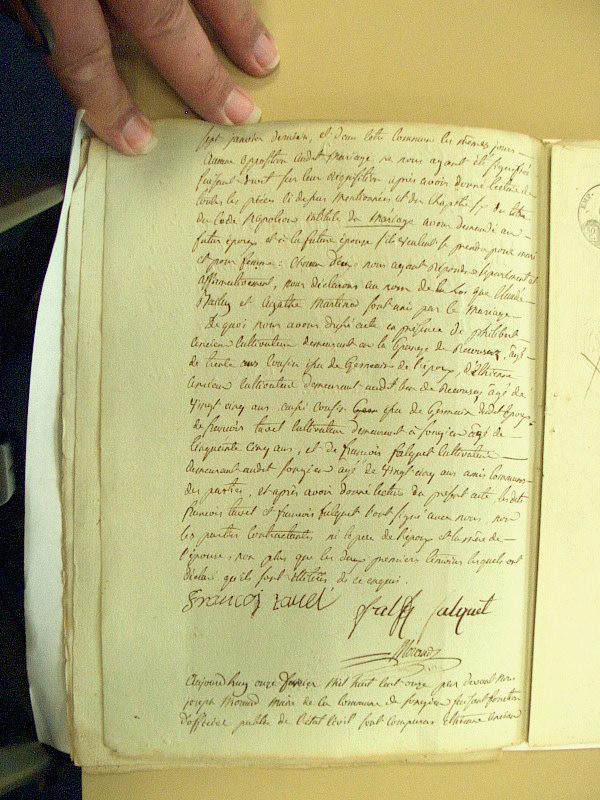 sept janvier dernier, et dans cette commune les mêmes jours
Aucune opposition audit Mariage ne nous ayant été signifiée
faisant droit sur leur réquisition après avoir donné lecture de
toutes les pièces ci dessus mentionnées et du Chapitre 6 du titre
du Code Napoléon intitulé du Mariage avons demandé au
futur époux et à la future épouse s'ils veulent se prendre pour mari
et pour femme: chacun d'eux nous ayant répondu séparément et
affirmativement, nous déclarons au nom de la Loi que Claude
et Agathe Martinod sont unis par le Mariage
De quoi nous avons dressé acte en présence de philibert
ancien Cultivateur demeurant en la Grange de agé
de trente ans Cousin issu de Germain de l'époux, d'Etienne
ancien Cultivateur demeurant audit lieu de agé de
Vingt cinq ans aussi Cousin issu de Germain dudit époux
de françois tavel Cultivateur demeurant à songieu agé de
Cinquante Cinq ans, et de françois falquet Cultivateur
demeurant audit songieu agé de Vingt cinq ans amis Communs
des parties, et après avoir donné lecture du présent acte lesdits
françois tavel et françois falquet l'ont signé avec nous non
les parties Contractantes ni le pere de l'époux et la mère de
l'épouse, non plus que les deux premiers temoins lesquels ont
déclaré qu'ils sont illitérés de ce enquis.
francoi tavel falquet
Morand
Aujourd'huy onze fevrier Mil huit Cent onze par devant Nous
joseph Morand Maire de la Commune de songieu faisant fonction
d'officier public de l'état Civil sont Comparus Etienne ancian